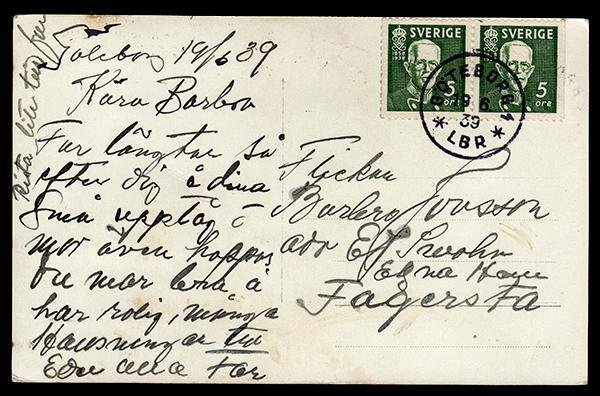 Rita lite
Göteborg 19/6 39
Kära Barbro
Far längtar så
efter dig å dina
små upptåg o
mor även hoppas
du mår bra å
har rolig, många
Hälsningar till
Eder alla Far
Flickan
Barbro Jonsson
adr
Edna Hem
Fagersta
SVERIGE SVERIGE
1858 1938
5 öre 5 öre
GÖTEBORG 1
19 6
39
* LBR *